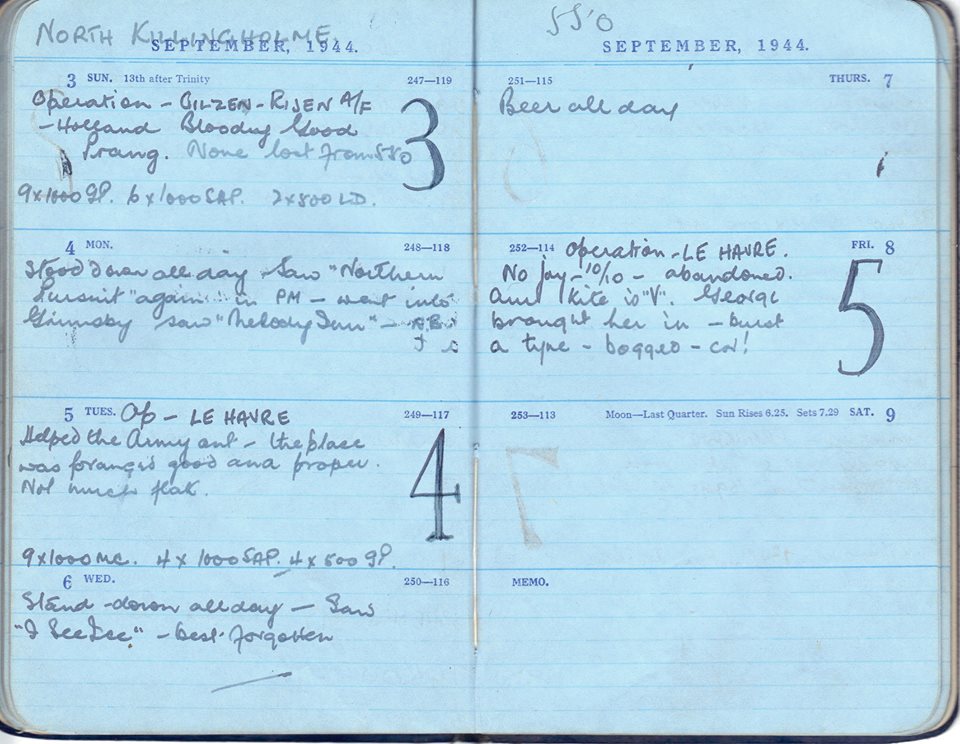 NORTH KILLINGHOLME
SEPTEMBER, 1944.
3 SUN. 13th after Trinity 247—119
Operation - GILZEN-RIJEN A/F
- Holland Bloody Good
Prang. None lost from 550
3
9x1000 GP. 6x1000 SAP. 2x500 LD.
4 MON. 248—118
Stood down all day. Saw "Northern
Pursuit" again in PM - went into
Grimsby saw "Melody Inn" -
5 TUES. Op - LE HAVRE 249—117
Helped the Army out - the place
was pranged good and proper.
Not much flak.
4
9x1000 MC. 4x1000 SAP. 4x500 GP.
6 WED. 250—116
Stand-down all day - Saw
- best forgotten
550
SEPTEMBER, 1944.
251—115 THURS. 7
Beer all day
252—114 Operation - LE HAVRE. FRI. 8
No joy - 10/10 - abandoned.
our kite is "V". George
brought her in - burst
a tyre - bogged - cor!
5
253—113 Moon—Last Quarter. Sun Rises 6.25. Sets 7.29 SAT. 9
7
MEMO.